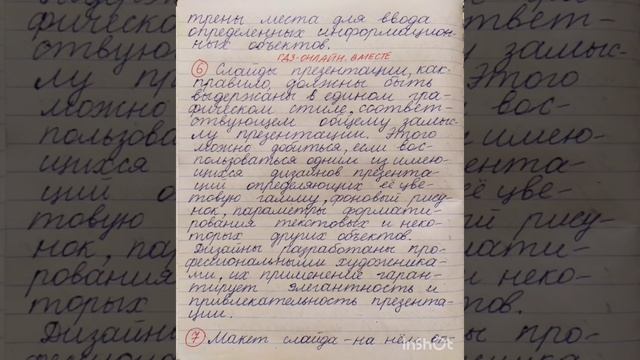 трены места для ввода
определенных информацион-
ных объектов.
ГДЗ-ОНЛАЙН. ВМЕСТЕ
6 Слайды презентации, как
правило, должны быть
выдержаны в едином гра-
фическом стиле, соответ-
ствующем общему замыс-
лу презентации. Этого
можно добиться, если вос-
пользоваться одним из имею-
щихся дизайнов презента-
ции определяющих её цве-
товую гамму, фоновый рису-
нок, параметры формати-
рования текстовых и неко-
торых других объектов.
Дизайны разработаны про-
фессиональными художника-
ми, их применение гаран-
тирует элегантность и
привлекательность презента-
ции.
7 Макет слайда - на нём
InShot